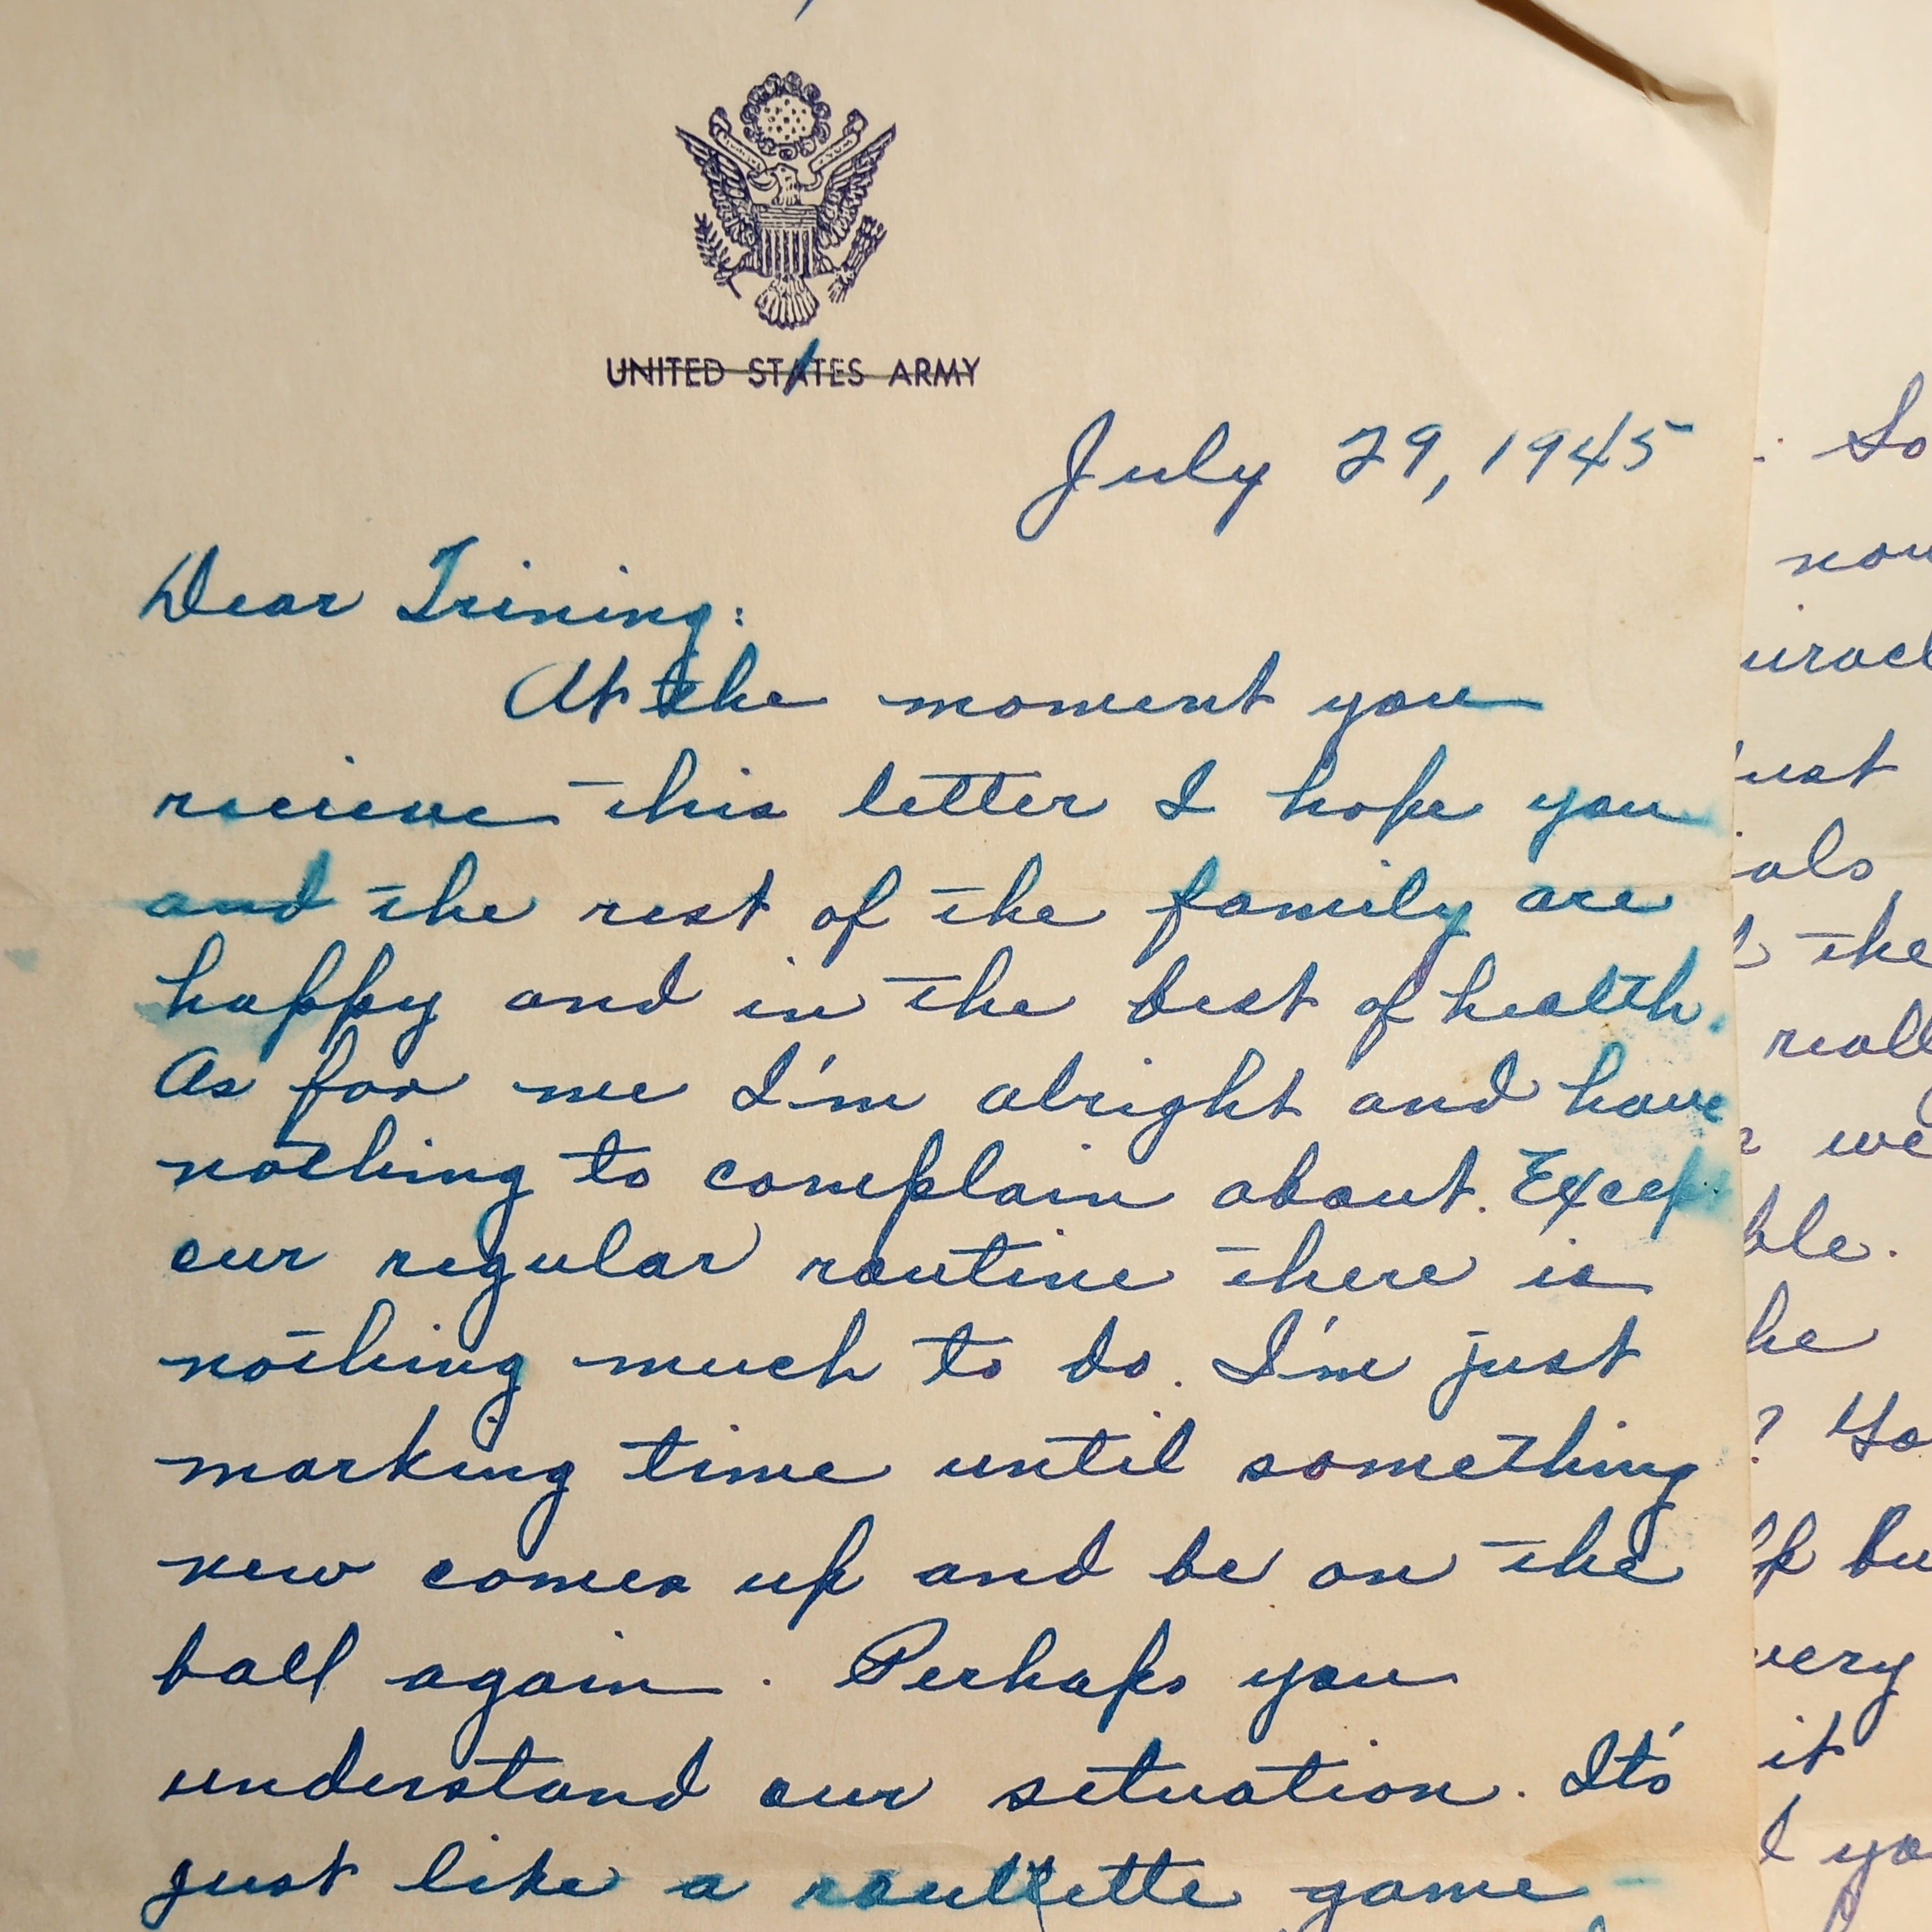 UNITED STATES ARMY
July 29, 1945
Dear Trining:
At the moment you
recieve this letter I hope you
and the rest of the family are
happy and in the best of health.
As for me I'm alright and have
nothing to complain about. Except
our regular routine there is
nothing much to do. I'm just
marking time until something
new comes up and be on the
ball again. Perhaps you
understand our situation. It's
just like a roullette game
So
the
we
he
very
it